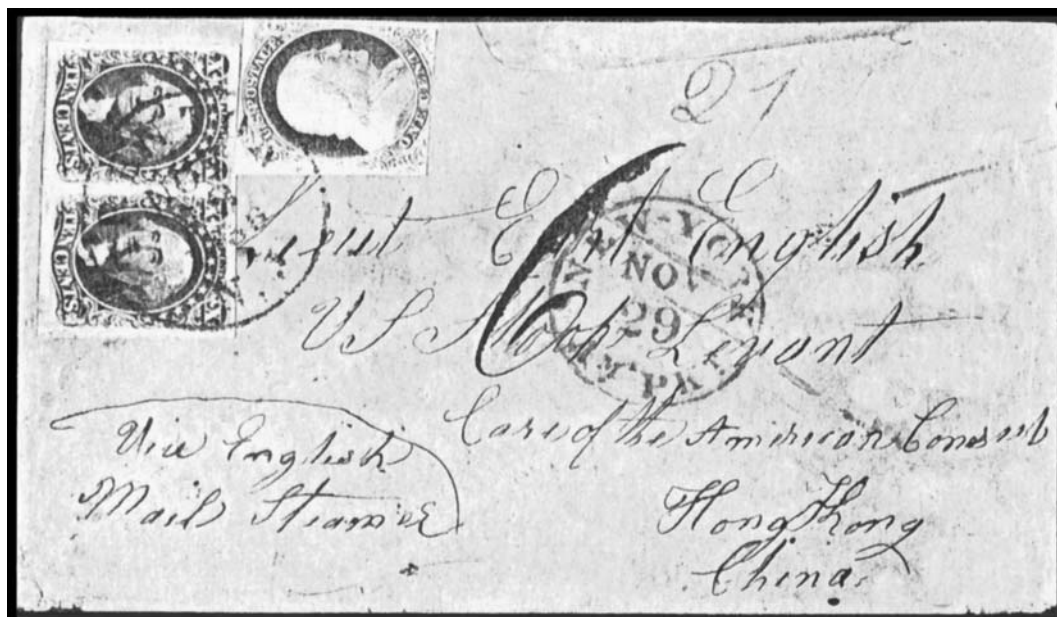 U.S. POSTAGE
TEN CENTS
TEN CENTS
21
6
Lieut Earl English
US Sloop Levant
NEW-YORK
NO
29
AM. PKT.
Care of the American Consul
Hong Kong
China.
Via English
Mail Steamer